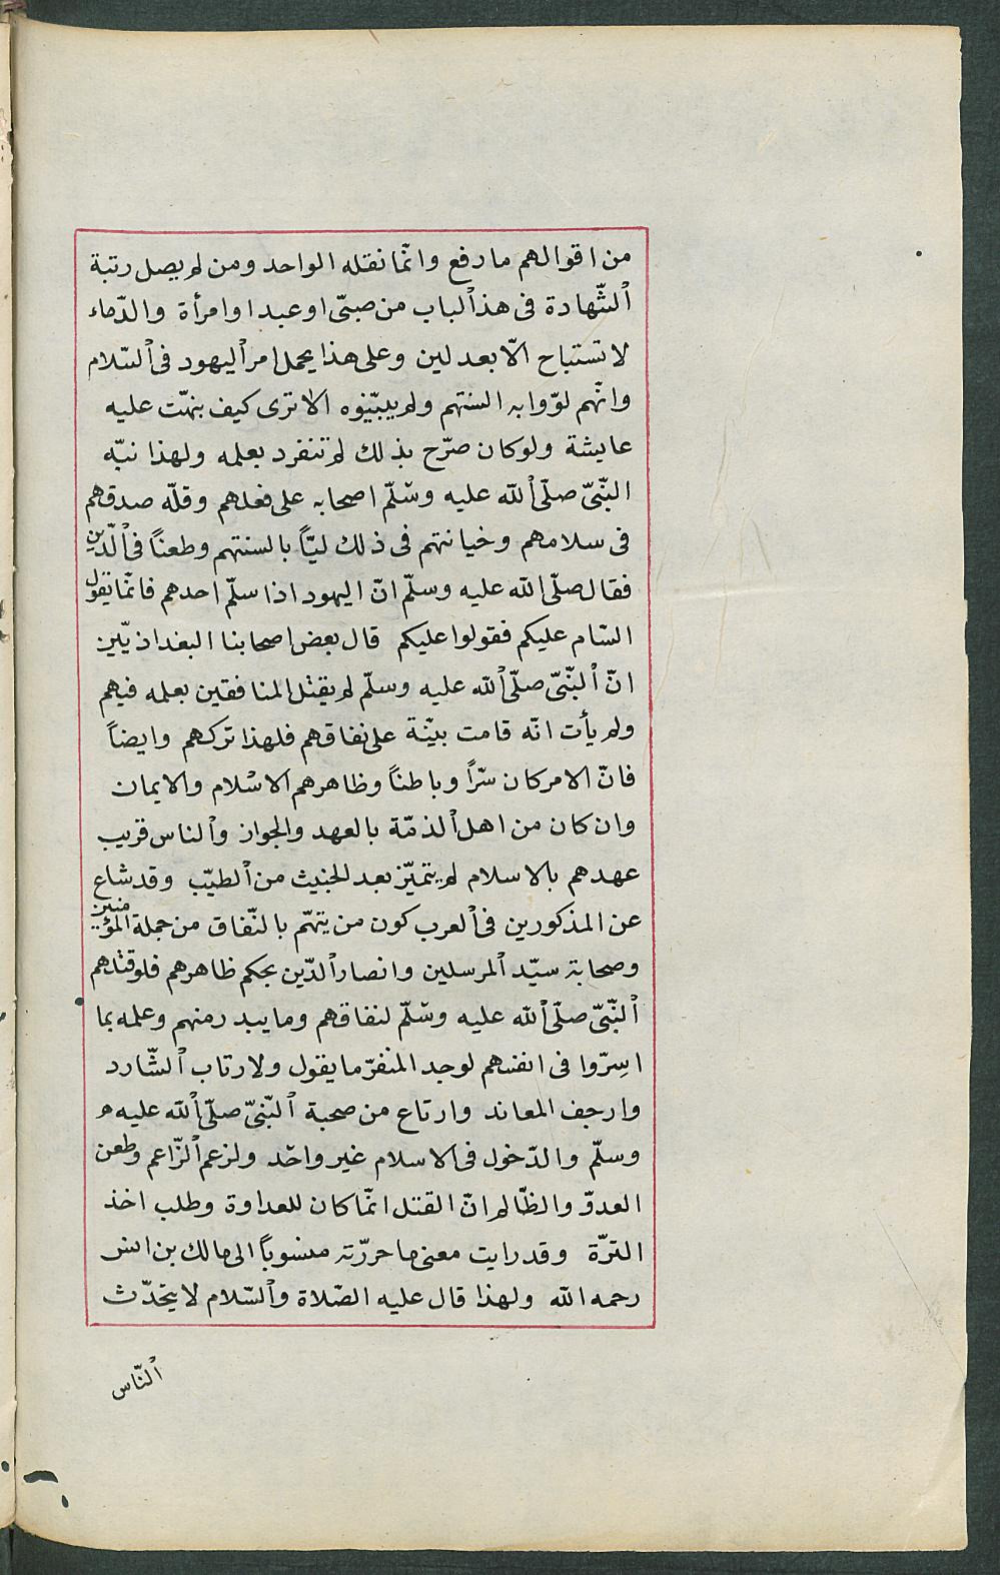 من اقوالهم ما رفع وانّما نقله الواحد ومن لم يصل رتبة
ٱلشّهادة فى هذ ٱلباب من صبىّ او عبد او امرأة والدّماء
لا تستباح الّا بعدلين وعلى هذا يحمل امر ٱليهود فى ٱلسّلام
وانّهم لوّوا به السنتهم ولم يبيّنوه الا ترى كيف نبهّت عليه
عايشة ولو كان صرّح بذلك لم تنفرد بعلمه ولهذا نبّه
النّبىّ صلّى ٱلله عليه وسّلم اصحابه على فعلهم وقلّه صدقهم
فى سلامهم وخيانتهم فى ذلك ليّاً بالسنتهم وطعناً فى ٱلدّين
فقال صلّى ٱلله عليه وسلّم انّ اليهود اذا سلّم احدهم فانّما يقول
السّام عليكم فقولوا عليكم قال بعض اصحابنا البغداذيّين
انّ ٱلنّبىّ صلّى ٱلله عليه وسلّم لم يقتل المنافقين بعلمه فيهم
ولم يأت انّه قامت بيّنة على نفاقهم فلهذا تركهم وايضاً
فانّ الامر كان سّراً وباطناً وظاهرهم الاسْلام والايمان
وان كان من اهل ٱلذمّة بالعهد والجواز وٱلناس قريب
عهدهم بالاسلام لم يتميّز بعد الخبيث من ٱلطيّب وقد شاع
عن المذكورين فى ٱلعرب كون من يتهّم بالنّفاق من جملة المؤمنين
وصحابة سيّد ٱلمرسلين وانصار ٱلدّين بحكم ظاهرهم فلو قتلهم
ٱلنّبىّ صلّى ٱلله عليه وسّلم لنفاقهم وما يبدر منهم وعلمه بما
اسِرّوا فى انفسهم لوجد المنفرّ ما يقول ولارتاب ٱلشّارد
وارجف المعاند وارتاع من صحبة ٱلنّبىّ صلّى ٱلله عليه
وسلّم والدّخول فى الاسلام غير واحد ولزعم ٱلزّاعم وطعن
العدوّ والظّالم انّ القتل انمّا كان للعداوة وطلب اخذ
الترّة وقد رايت معنى ما حررّته منسوباً الى مالك بن انس
رحمه الله ولهذا قال عليه الصّلاة وٱلسّلام لا يتحّدث
ٱلنّاس